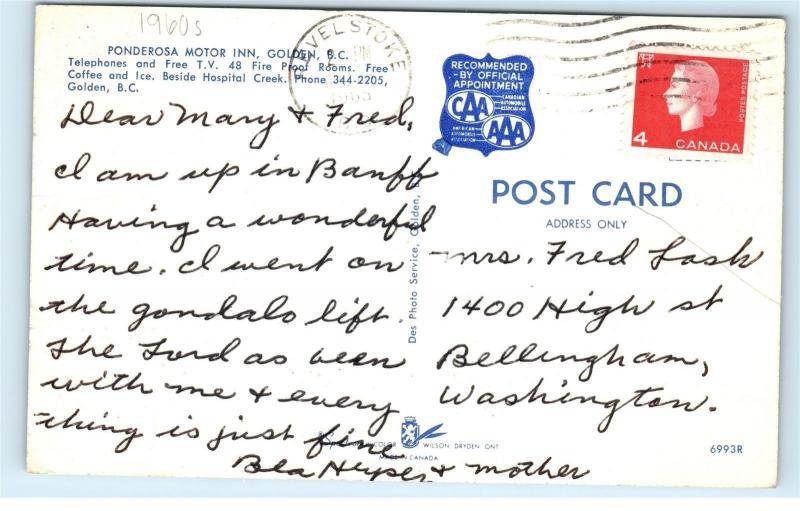 1960s
PONDEROSA MOTOR INN, GOLDEN, B.C.
Telephones and Free T.V. 48 Fire Proof Rooms. Free
Coffee and Ice. Beside Hospital Creek. Phone 344-2205,
Golden, B.C.
REVELSTOKE
PM
RECOMMENDED
BY OFFICIAL
APPOINTMENT
CAA
CANADIAN
AUTOMOBILE
ASSOCIATION
AMERICAN
AUTOMOBILE
ASSOCIATION
AAA
4
CANADA
POSTES POSTAGE
Dear Mary & Fred,
I am up in Banff
Having a wonderful
time. I went on
the gondalo lift.
The Lord as been
with me & every
thing is just fine
Bea & mother
Des Photo Service, Golden, B.
POST CARD
ADDRESS ONLY
mrs. Fred Lash
1400 High st
Bellingham,
Washington.
COLOR WILSON DRYDEN ONT
MADE IN CANADA
6993R